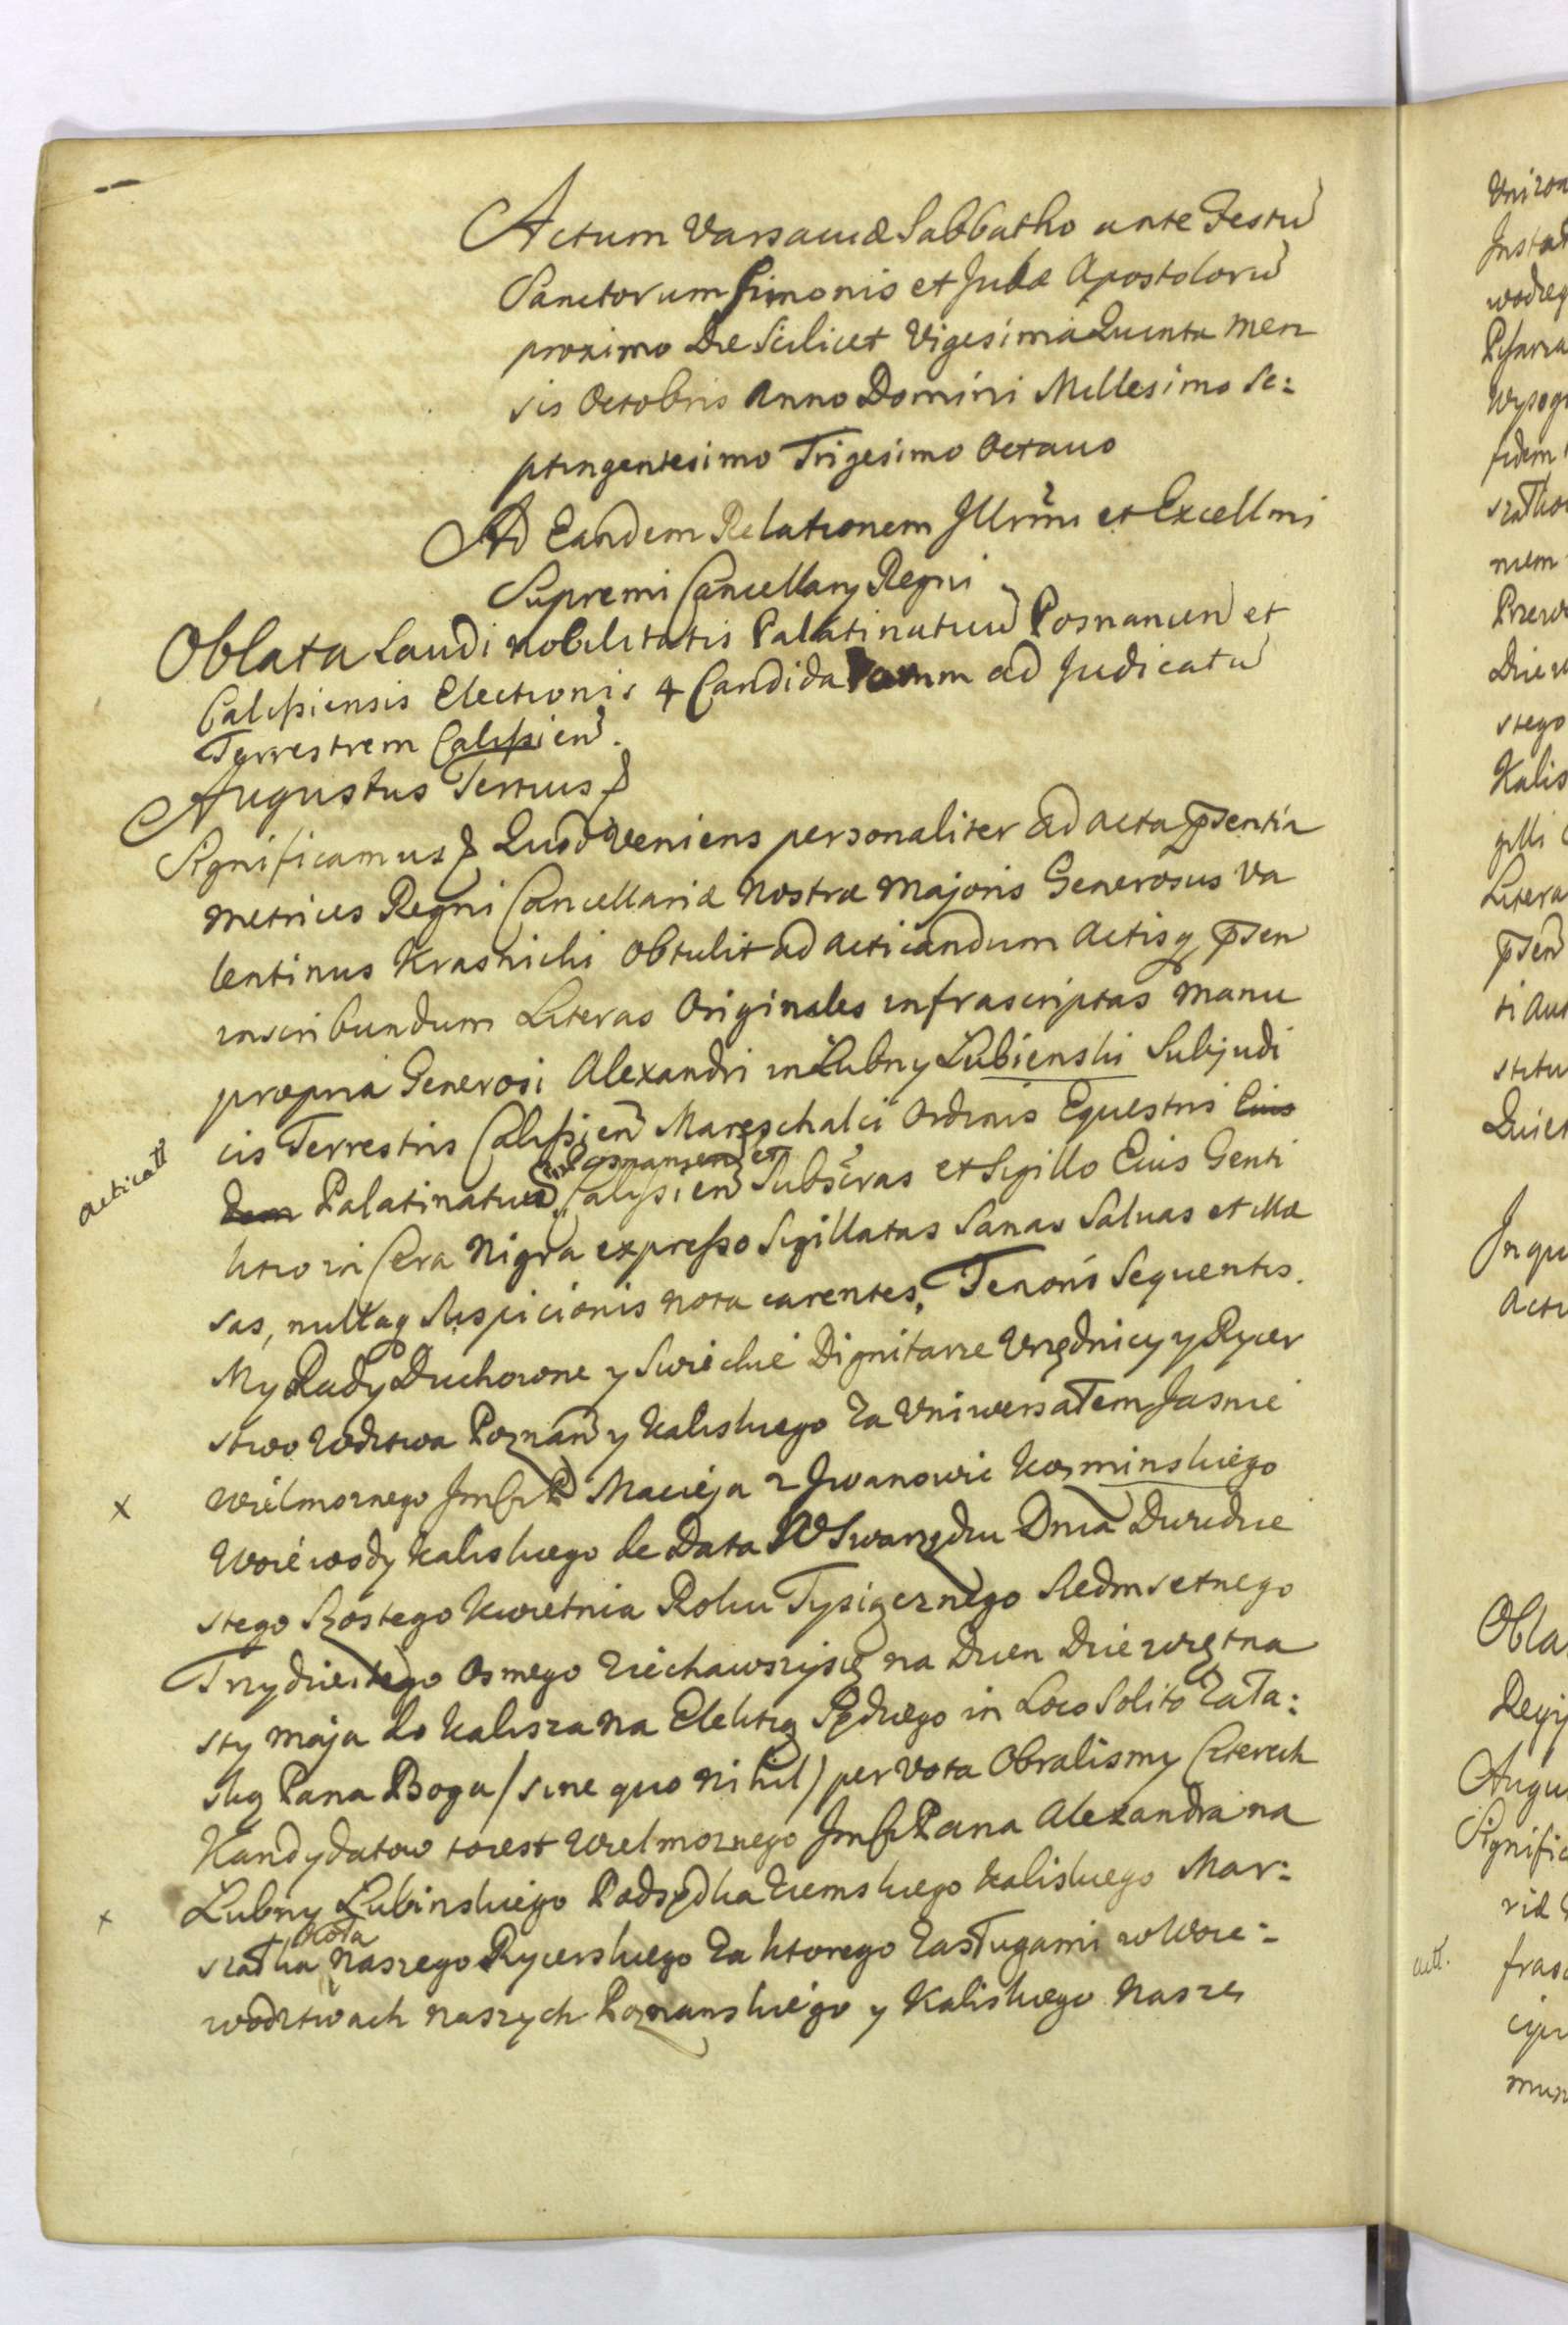 Actum Varsaviæ Sabbatho ante Festu
Sanctorum Simonis et Judæ Apostoloru
proximo Die Scilicet Vigesima Quinta Men
sis Octobris Anno Domini Millesimo Se:
ptingentesimo Trigesimo Octavo
Ad Eandem Relationem Illrmi et Excellmi
Supremi Cancellarij Regni
Oblata Laudi Nobilitatis Palatinatuu Posnanien et
Calissiensis Electionis 4 Candidatorum ad Judicatu
Terrestrem Calissien.
Augustus Tertius
Significamus Quod Veniens personaliter ad acta pсentia
Metrices Regni Cancellariæ Nostræ Majoris Generosus Va
lentinus Krasnicki Obtulit ad acticandum Actisq psen
inscribundum Literas Originales infrascriptas Manu
propria Generosi Alexandri in Lubny Lubienski Subjudi
acticatt
cis Terrestris Calissien Mareschalci Ordinis Equestris Eius
dem Palatinatuu Posnansen et Calissien Subscras et Sigillo Eius Genti
litio in Cera Nigra expresso Sigillatas Sanas Salvas et illæ
sas, nullaq Suspicionis nota carentes, Tenoris Sequentis.
My Rady Duchowne y Swieckie Dignitarze Urzędnicy y Rycer
stwo Wdztwa Poznan y Kaliskiego Za Uniwersałem Jasnie
x Wielmoznego JmCi P Macieja z Iwanowic Kozminskiego
Woiewody Kaliskiego de Data W Swarzędzu Dnia Dwudzie
stego Szostego Kwietnia Roku Tysiącznego Siedmsetnego
Trzydziestego Osmego Ziechawszysię na Dzien Dziewiętna
sty Maja do Kalisza na Elekcyą Sędziego in Loco Solito Zała:
ską Pana Boga /sine quo nihil/ per Vota Obralismy Czterech
Kandydatow toiest Wielmoznego JmCi Pana Alexandra na
x Lubny Lubinskiego Podsędka Ziemskiego Kaliskiego Mar:
szałka Koła naszego Rycerskiego Za ktorego Zasługami w Woie:
wodztwach naszych Poznanskiego y Kaliskiego Nasze